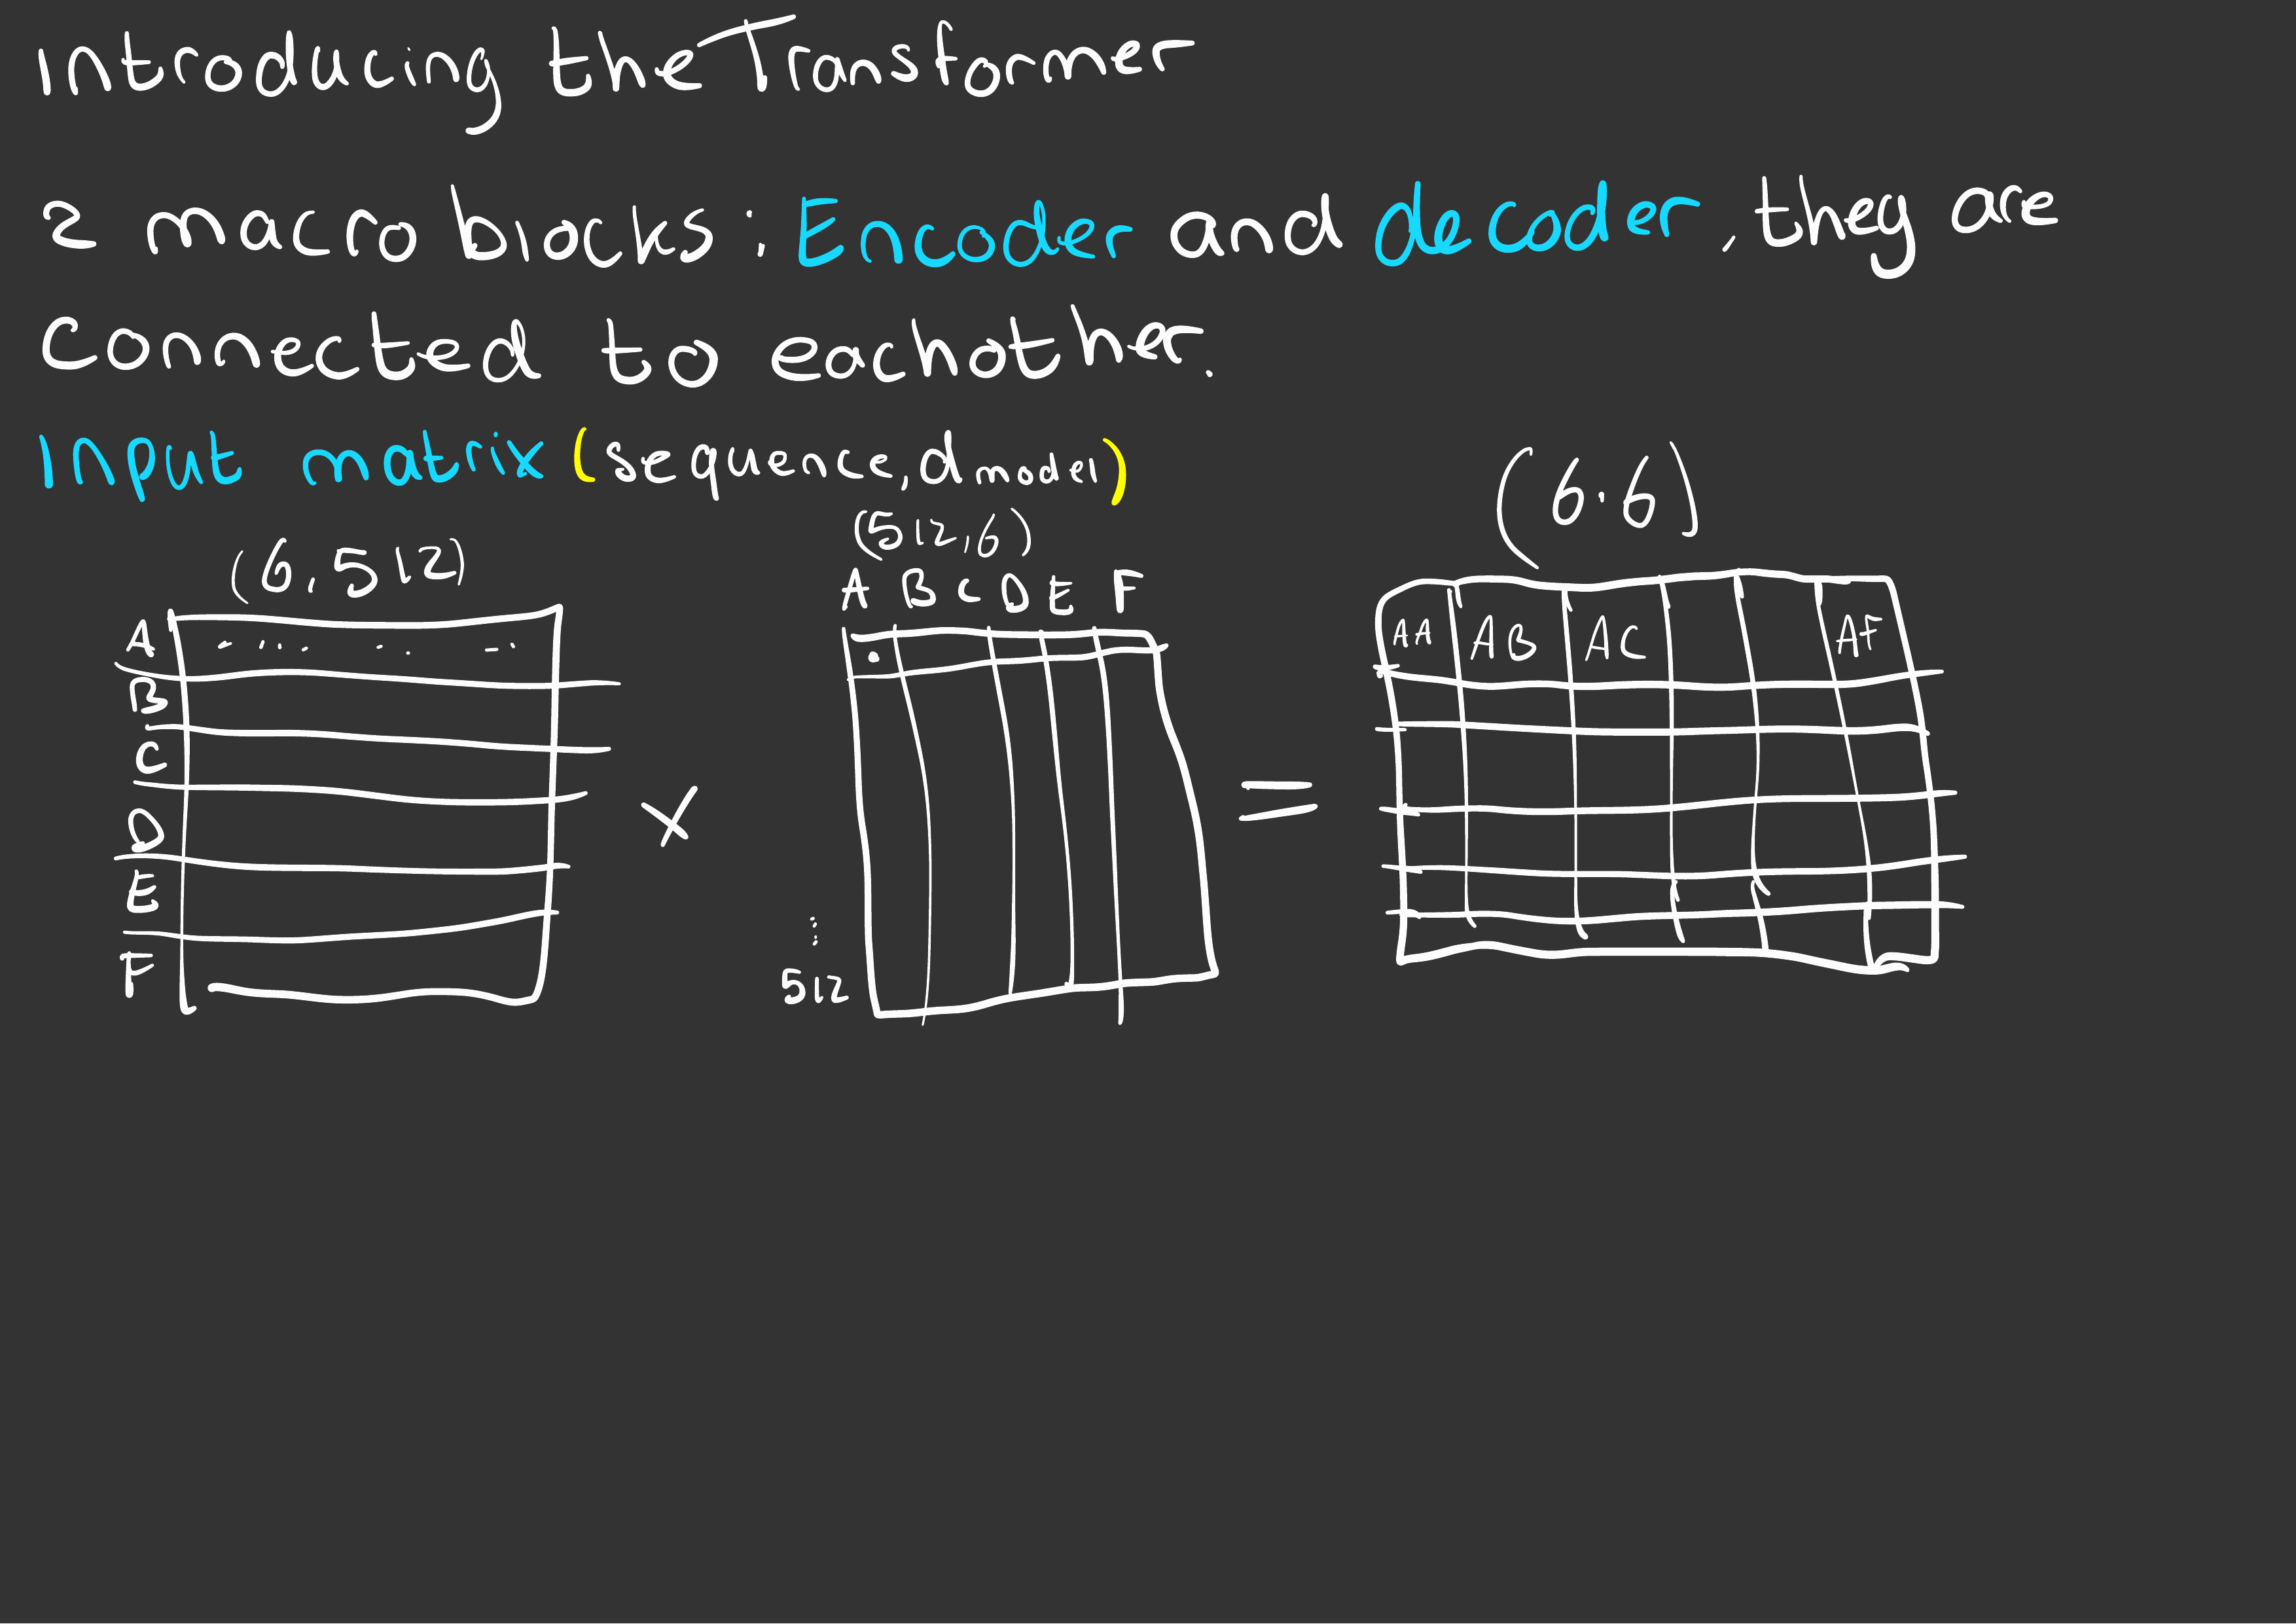 Introducing the Transformer
2 macro blocks : Encoder and decoder, they are
connected to eachother.
Input matrix (sequence, d model)
(6, 512)
(512, 6)
(6.6)
A B C D E F
A
B
C
D
E
F
X
512
=
AA AB AC AF